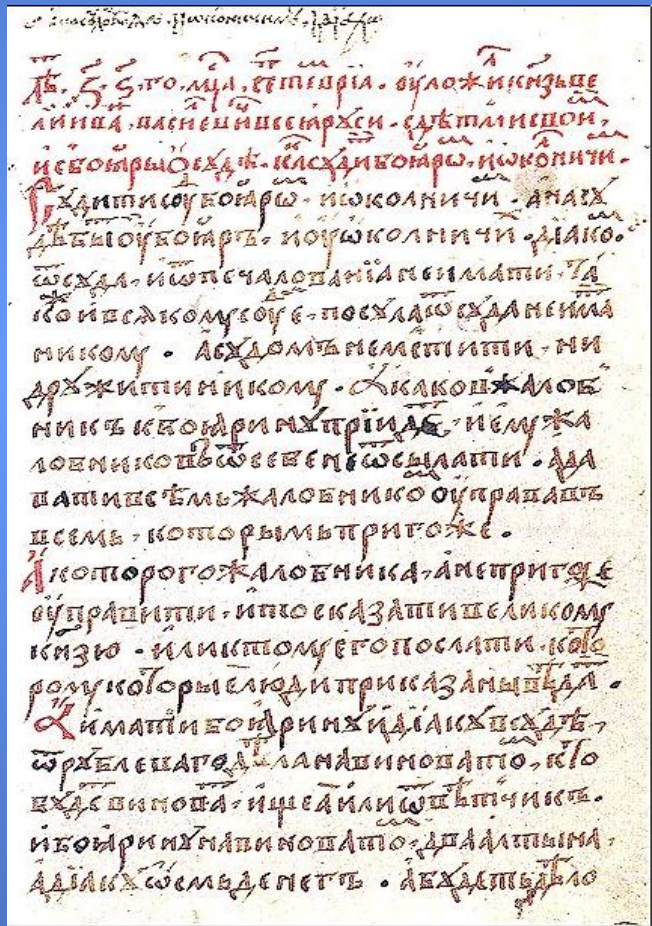 лѣ҇т. ҂з҃. ѕ҃. го. мц҇а. септевріа. оуложил кнѧзь ве
лики ива васиевичь всеꙗ руси. с дѣтми своими,
и с боꙗры ѡ сꙋдѣ. как сꙋдити боꙗрѡм, и ѡколничим.
Сꙋдити сꙋд боꙗрѡм. и ѡколничим. а на сꙋ
дѣ быти оу боꙗръ. и оу ѡколничих. діакѡм.
ѿ сꙋда. и ѿ печалованїа не имати. та
кож и всякому соуе. посула ѿ сꙋда не има
никому. а сꙋдомъ не мстити, ни
дрꙋжити никому. а каков жалоб
никъ к боꙗринꙋ прїидеть. и ему жа
лобников ѿ себе не ѿсылати. а да
вати всѣмь жалобником оуправа въ
всемь. которымь пригоже.
А которого жалобника, а не пригоже
оуправити. и то сказати великому
кнѧзю. или к тому его послати. кото
рому которые люди приказаны вѣдат.
А имати боꙗринꙋ и діакꙋ в сꙋдѣ,
ѿ рꙋблеваго дѣла на виноватом, кто
бꙋдет виноват. ищеа или ѿвѣтчикъ.
и боꙗринꙋ на виноватом, два алтына,
а дїакꙋ осмь денегъ. а бꙋдеть дѣло